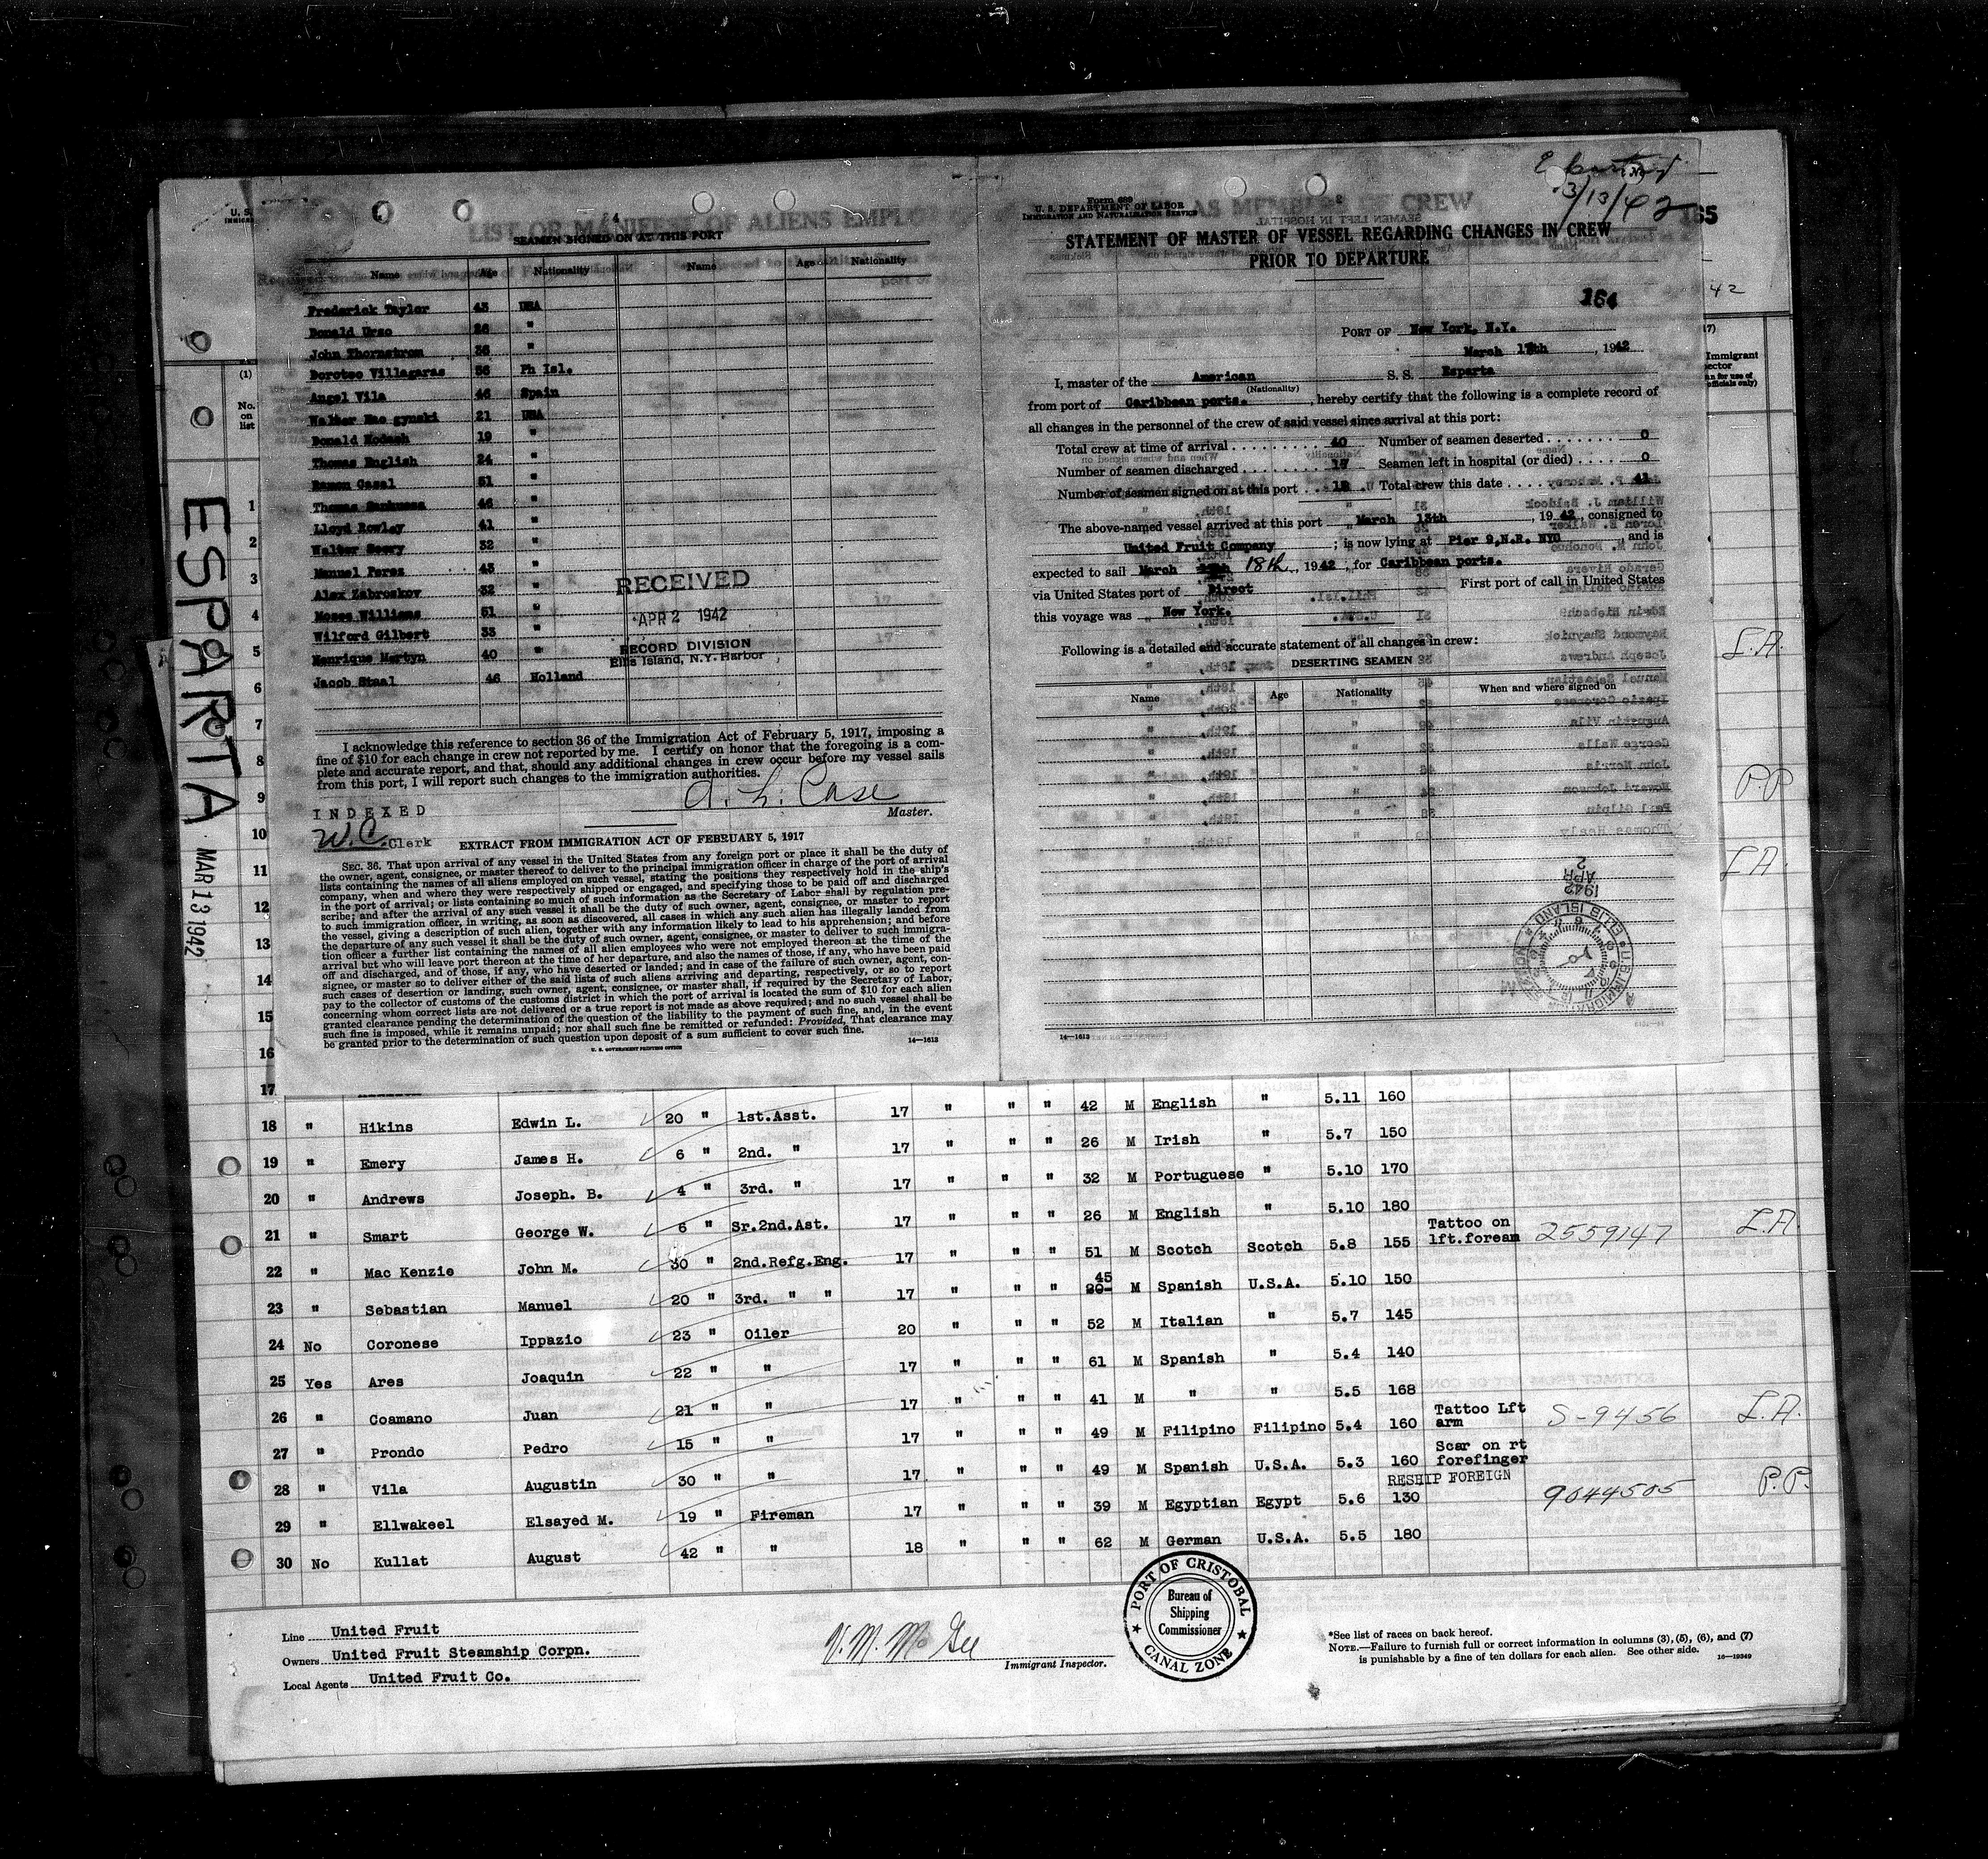 E
3/13/42
165
U. S.
LIST OR MANIFEST OF ALIENS EMPL
AS MEMBERS OF CREW
SEAMEN SIGNED ON AT THIS PORT
Name Age Nationality Name Age Nationality
Frederick Taylor 43 USA
Donald Urso 26 "
John Thornstrom 36 "
Doroteo Villagaras 36 Ph Isl.
Angel Vila 46 Spain
Walter 21 USA
Donald Kodash 19 "
Thomas English 24 "
Ramon Casal 51 "
Thomas 46 "
Lloyd Rowley 41 "
Walter 32 "
Manuel Perez 43 "
Alex Zabroskov 32 "
Moses Williams 51 "
Wilford Gilbert 33 "
Henrique Martyn 40 "
Jacob Staal 46 Holland
RECEIVED
APR 2 1942
RECORD DIVISION
Ellis Island, N.Y. Harbor
I acknowledge this reference to section 36 of the Immigration Act of February 5, 1917, imposing a
fine of $10 for each change in crew not reported by me. I certify on honor that the foregoing is a com-
plete and accurate report, and that, should any additional changes in crew occur before my vessel sails
from this port, I will report such changes to the immigration authorities.
A. L. Case
Master.
INDEXED
W.C. Clerk
EXTRACT FROM IMMIGRATION ACT OF FEBRUARY 5, 1917
SEC. 36. That upon arrival of any vessel in the United States from any foreign port or place it shall be the duty of
the owner, agent, consignee, or master thereof to deliver to the principal immigration officer in charge of the port of arrival
lists containing the names of all aliens employed on such vessel, stating the positions they respectively hold in the ship's
company, when and where they were respectively shipped or engaged, and specifying those to be paid off and discharged
in the port of arrival; or lists containing so much of such information as the Secretary of Labor shall by regulation pre-
scribe; and after the arrival of any such vessel it shall be the duty of such owner, agent, consignee, or master to report
to such immigration officer, in writing, as soon as discovered, all cases in which any such alien has illegally landed from
the vessel, giving a description of such alien, together with any information likely to lead to his apprehension; and before
the departure of any such vessel it shall be the duty of such owner, agent, consignee, or master to deliver to such immigra-
tion officer a further list containing the names of all alien employees who were not employed thereon at the time of the
arrival but who will leave port thereon at the time of her departure, and also the names of those, if any, who have been paid
off and discharged, and of those, if any, who have deserted or landed; and in case of the failure of such owner, agent, con-
signee, or master so to deliver either of the said lists of such aliens arriving and departing, respectively, or so to report
such cases of desertion or landing, such owner, agent, consignee, or master shall, if required by the Secretary of Labor,
pay to the collector of customs of the customs district in which the port of arrival is located the sum of $10 for each alien
concerning whom correct lists are not delivered or a true report is not made as above required; and no such vessel shall be
granted clearance pending the determination of the question of the liability to the payment of such fine, and, in the event
such fine is imposed, while it remains unpaid; nor shall such fine be remitted or refunded: Provided, That clearance may
be granted prior to the determination of such question upon deposit of a sum sufficient to cover such fine.
U. S. GOVERNMENT PRINTING OFFICE 14—1613
Form 689
U. S. DEPARTMENT OF LABOR
IMMIGRATION AND NATURALIZATION SERVICE
STATEMENT OF MASTER OF VESSEL REGARDING CHANGES IN CREW
PRIOR TO DEPARTURE
164
PORT OF New York, N.Y.
March 17th, 1942
I, master of the American S. S. Esparta
(Nationality)
from port of Caribbean ports., hereby certify that the following is a complete record of
all changes in the personnel of the crew of said vessel since arrival at this port:
Total crew at time of arrival 40 Number of seamen deserted 0
Number of seamen discharged 17 Seamen left in hospital (or died) 0
Number of seamen signed on at this port 18 Total crew this date 41
The above-named vessel arrived at this port March 13th, 1942, consigned to
United Fruit Company; is now lying at Pier 9,N.R. NYC, and is
expected to sail March 18th, 1942, for Caribbean ports.
via United States port of Direct First port of call in United States
this voyage was New York.
Following is a detailed and accurate statement of all changes in crew:
DESERTING SEAMEN
Name Age Nationality When and where signed on
1942
APR
2
14—1613
42
Immigrant
(1)
No.
on
list
ESPARTA MAR 13 1942
1
2
3
4
5 L.A.
6
7
8
9 P.P.
10
11 L.A.
12
13
14
15
16
17
18 " Hikins Edwin L. 20 " 1st.Asst. 17 " " " 42 M English " 5.11 160
19 " Emery James H. 6 " 2nd. " 17 " " " 26 M Irish " 5.7 150
20 " Andrews Joseph. B. 4 " 3rd. " 17 " " " 32 M Portuguese " 5.10 170
21 " Smart George W. 6 " Sr.2nd.Ast. 17 " " " 26 M English " 5.10 180
22 " Mac Kenzie John M. 30 " 2nd.Refg.Eng. 17 " " " 51 M Scotch Scotch 5.8 155 Tattoo on lft.foream 2559147 L.A.
23 " Sebastian Manuel 20 " 3rd. " " 17 " " " 45 20 M Spanish U.S.A. 5.10 150
24 No Coronese Ippazio 23 " Oiler 20 " " " 52 M Italian " 5.7 145
25 Yes Ares Joaquin 22 " " 17 " " " 61 M Spanish " 5.4 140
26 " Coamano Juan 21 " " 17 " " " 41 M " " 5.5 168
27 " Prondo Pedro 15 " " 17 " " " 49 M Filipino Filipino 5.4 160 Tattoo Lft arm S-9456 L.A.
28 " Vila Augustin 30 " " 17 " " " 49 M Spanish U.S.A. 5.3 160 Scar on rt forefinger
RESHIP FOREIGN
29 " Ellwakeel Elsayed M. 19 " Fireman 17 " " " 39 M Egyptian Egypt 5.6 130 9044505 P.P.
30 No Kullat August 42 " " 18 " " " 62 M German U.S.A. 5.5 180
Line United Fruit
Owners United Fruit Steamship Corpn.
Local Agents United Fruit Co.
V. M. McGee
Immigrant Inspector.
PORT OF CRISTOBAL
Bureau of
Shipping
Commissioner
CANAL ZONE
*See list of races on back hereof.
NOTE.—Failure to furnish full or correct information in columns (3), (5), (6), and (7)
is punishable by a fine of ten dollars for each alien. See other side. 10—19349